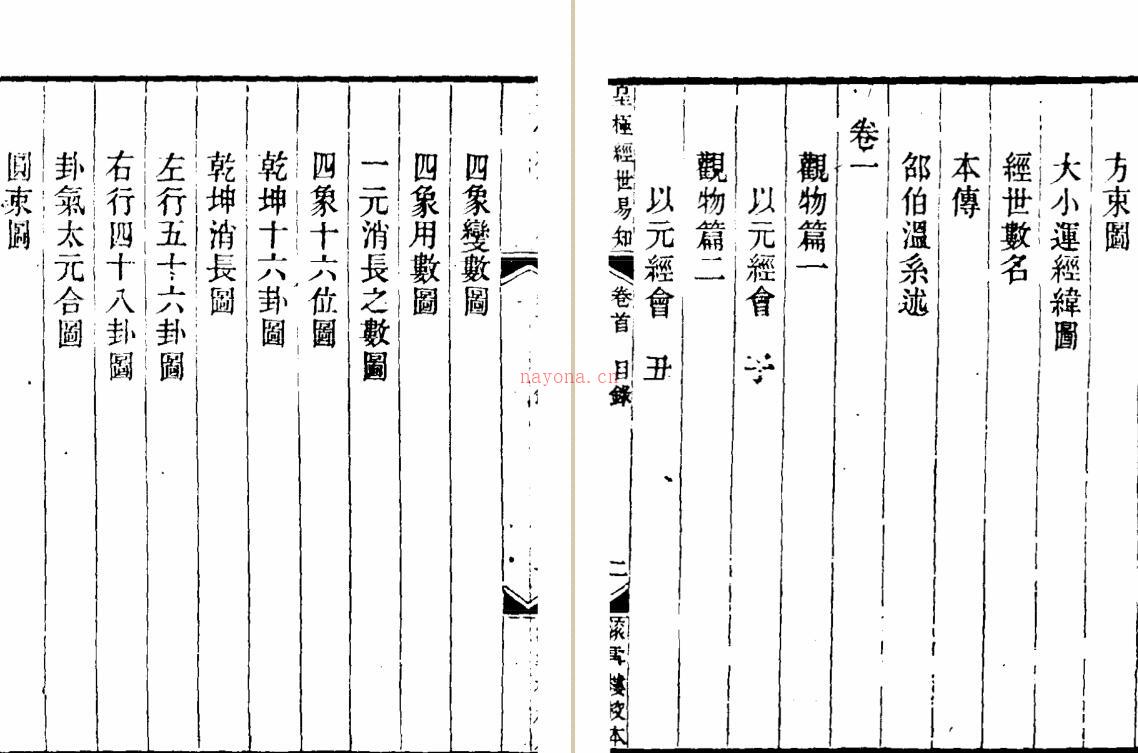 四象變數圖
四象用數圖
一元消長之數圖
四象十六位圖
乾坤十六卦圖
乾坤消長圖
左行五十六卦圖
右行四十八卦圖
卦氣太元合圖
圓東圖
方東圖
大小運經緯圖
經世數名
本傳
邵伯溫系述
卷一
觀物篇一
以元經會 子
觀物篇二
以元經會 丑
皇極經世易知 卷首 目錄 二 雪樓校本
nayona.cn